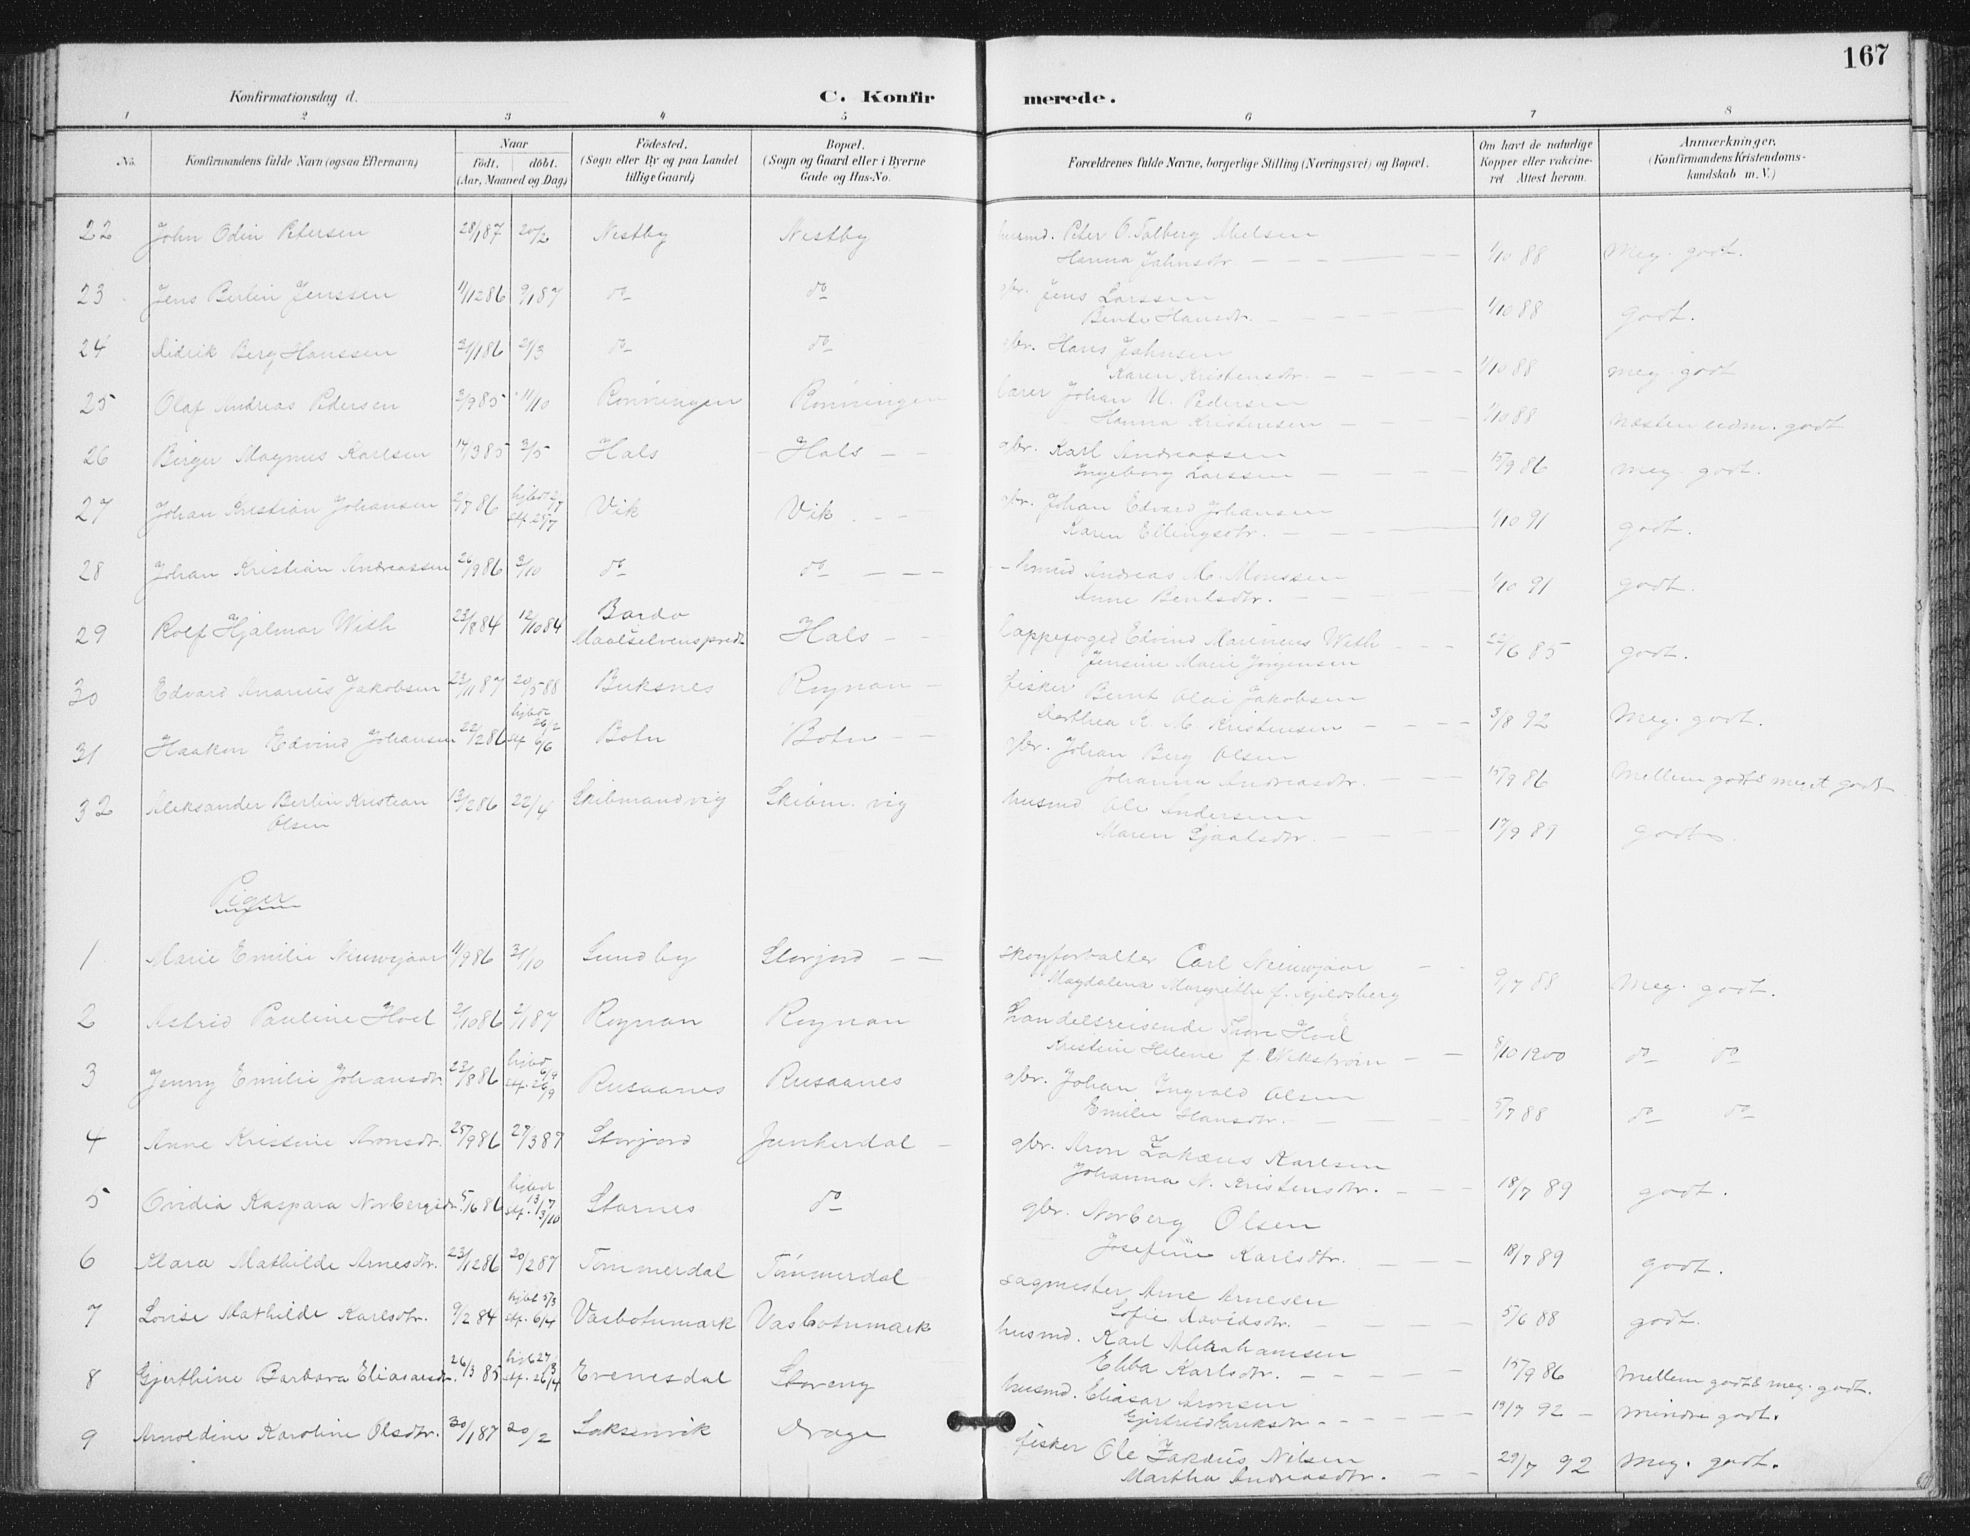 167
Konfirmationsdag d.
C. Konfir merede.
1 2 3 4 5 6 7 8
No.
Konfirmandens fulde Navn (ogsaa Efternavn)
Naar
født. døbt.
(Aar, Maaned og Dag)
Födested.
(Sogn eller By og paa Landet
tillige Gaard)
Bopæl.
(Sogn og Gaard eller i Byerne
Gade og Hus-No.
Forældrenes fulde Navne, borgerlige Stilling (Næringsvei) og Bopæl.
Om havt de naturlige
Kopper eller vakcine-
ret Attest herom.
Anmærkninger.
(Konfirmandens Kristendoms-
kundskab m.V.)
22 John Odin Petersen 28/1 87 20/2 Nestby Nestby husmd. Peter O. Talberg Nielsen
Hanna Jahnsdtr. 1/10 88 Meg. godt.
23 Jens Berlin Jenssen 11/12 86 9/1 87 do do gbr. Jens Larssen
Bente Hansdtr. 1/10 88 godt.
24 Didrik Berg Hanssen 21/1 86 21/3 do do gbr. Hans Jahnsen
Karen Kristensdtr. 1/10 88 meg. godt
25 Olaf Andreas Pedersen 2/9 85 11/10 Rönningen Rönningen lærer Johan N. Pedersen
Hanna Kristensen 1/10 88 næsten udm. godt
26 Birger Magnus Karlsen 14/3 85 3/5 Hals Hals gbr. Karl Andreassen
Ingeborg Larssen 15/9 86 meg. godt.
27 Johan Kristian Johansen 2/7 86 hjbdt 2/7
stf. 25/7 Vik Vik gbr. Johan Edvard Johansen
Karen Ellingsdtr. 1/10 91 godt.
28 Johan Kristian Andreassen 26/9 86 3/10 do do husmd Andreas M. Monssen
Anne Bentsdtr. 1/10 91 godt.
29 Rolf Hjalmar With 23/8 84 12/10 84 Bardo
Maalselvens prgd. Hals lappefoged Edvind Marinius With
Jensine Marie Jörgensen 22/6 85 godt.
30 Edvard Anarius Jakobsen 23/11 87 20/5 88 Buksnes Rognan fisker Bernt Olai Jakobsen
Dorthea K. M. Kristensen 3/8 92 Meg. godt.
31 Haakon Edvind Johansen 22/2 86 hjbdt 26/2
stf 6/6 Botn Botn gbr. Johan Berg Olsen
Johanna Andreasdtr. 15/9 86 Mellem godt & meget godt
32 Aleksander Berlin Kristian
Olsen 13/2 86 22/4 Skibmandvig Skibm. vig husmd Ole Andersen
Maren Sjaalsdtr. 17/9 89 godt
Piger
1 Marie Emilie Nieuwejaar 11/9 86 31/10 Sundby Storjord skogforvalter Carl Nieuwejaar
Magdalena Margrethe f. Kjeldsberg 9/7 88 Meg. godt.
2 Astrid Pauline Hoel 21/10 86 2/1 87 Rognan Rognan Handelsreisende Thore Hoel
Kristine Helene f. Wikström 8/10 1200 do do
3 Jenny Emilie Johansdtr. 22/8 86 hjbdt 6/9
stf. 26/9 Rusaanes Rusaanes gbr. Johan Ingvald Olsen
Emilie Hansdtr. 5/7 88 do do
4 Anne Kristine Aronsdtr. 25/9 86 27/3 87 Storjord Junkerdal gbr. Aron Zakæus Karlsen
Johanna N. Kristensdtr. 18/7 89 godt.
5 Ovidia Kaspara Norbergsdtr. 5/6 86 hjbdt 13/7
stf. 3/10 Stornes do gbr. Norberg Olsen
Josefine Karlsdtr. 18/7 89 godt.
6 Klara Mathilde Arnesdtr. 23/12 86 20/2 87 Tömmerdal Tömmerdal sagmester Arne Arnesen
Sofie Davidsdtr. 5/6 88 godt.
7 Lovise Mathilde Karlsdtr. 9/2 84 hjbdt 5/3
stf. 6/4 Vasbotnmark Vasbotnmark husmd. Karl Abrahamsen
Ebba Karlsdtr. 15/9 86 Mellem godt & meg. godt.
8 Gjerthine Barbara Eliasarsdtr. 26/3 85 hjb 27/3
stf. 26/4 Evenesdal Storeng husmd. Eliasar Aronsen
Gjertrud Eriksdtr. 19/7 92 mindre godt.
9 Arnoldine Karoline Olsdtr. 30/1 87 20/2 Saksenvik Drage fisker Ole Zakæus Nilsen
Martha Andreasdtr. 29/7 92 Meg. godt.